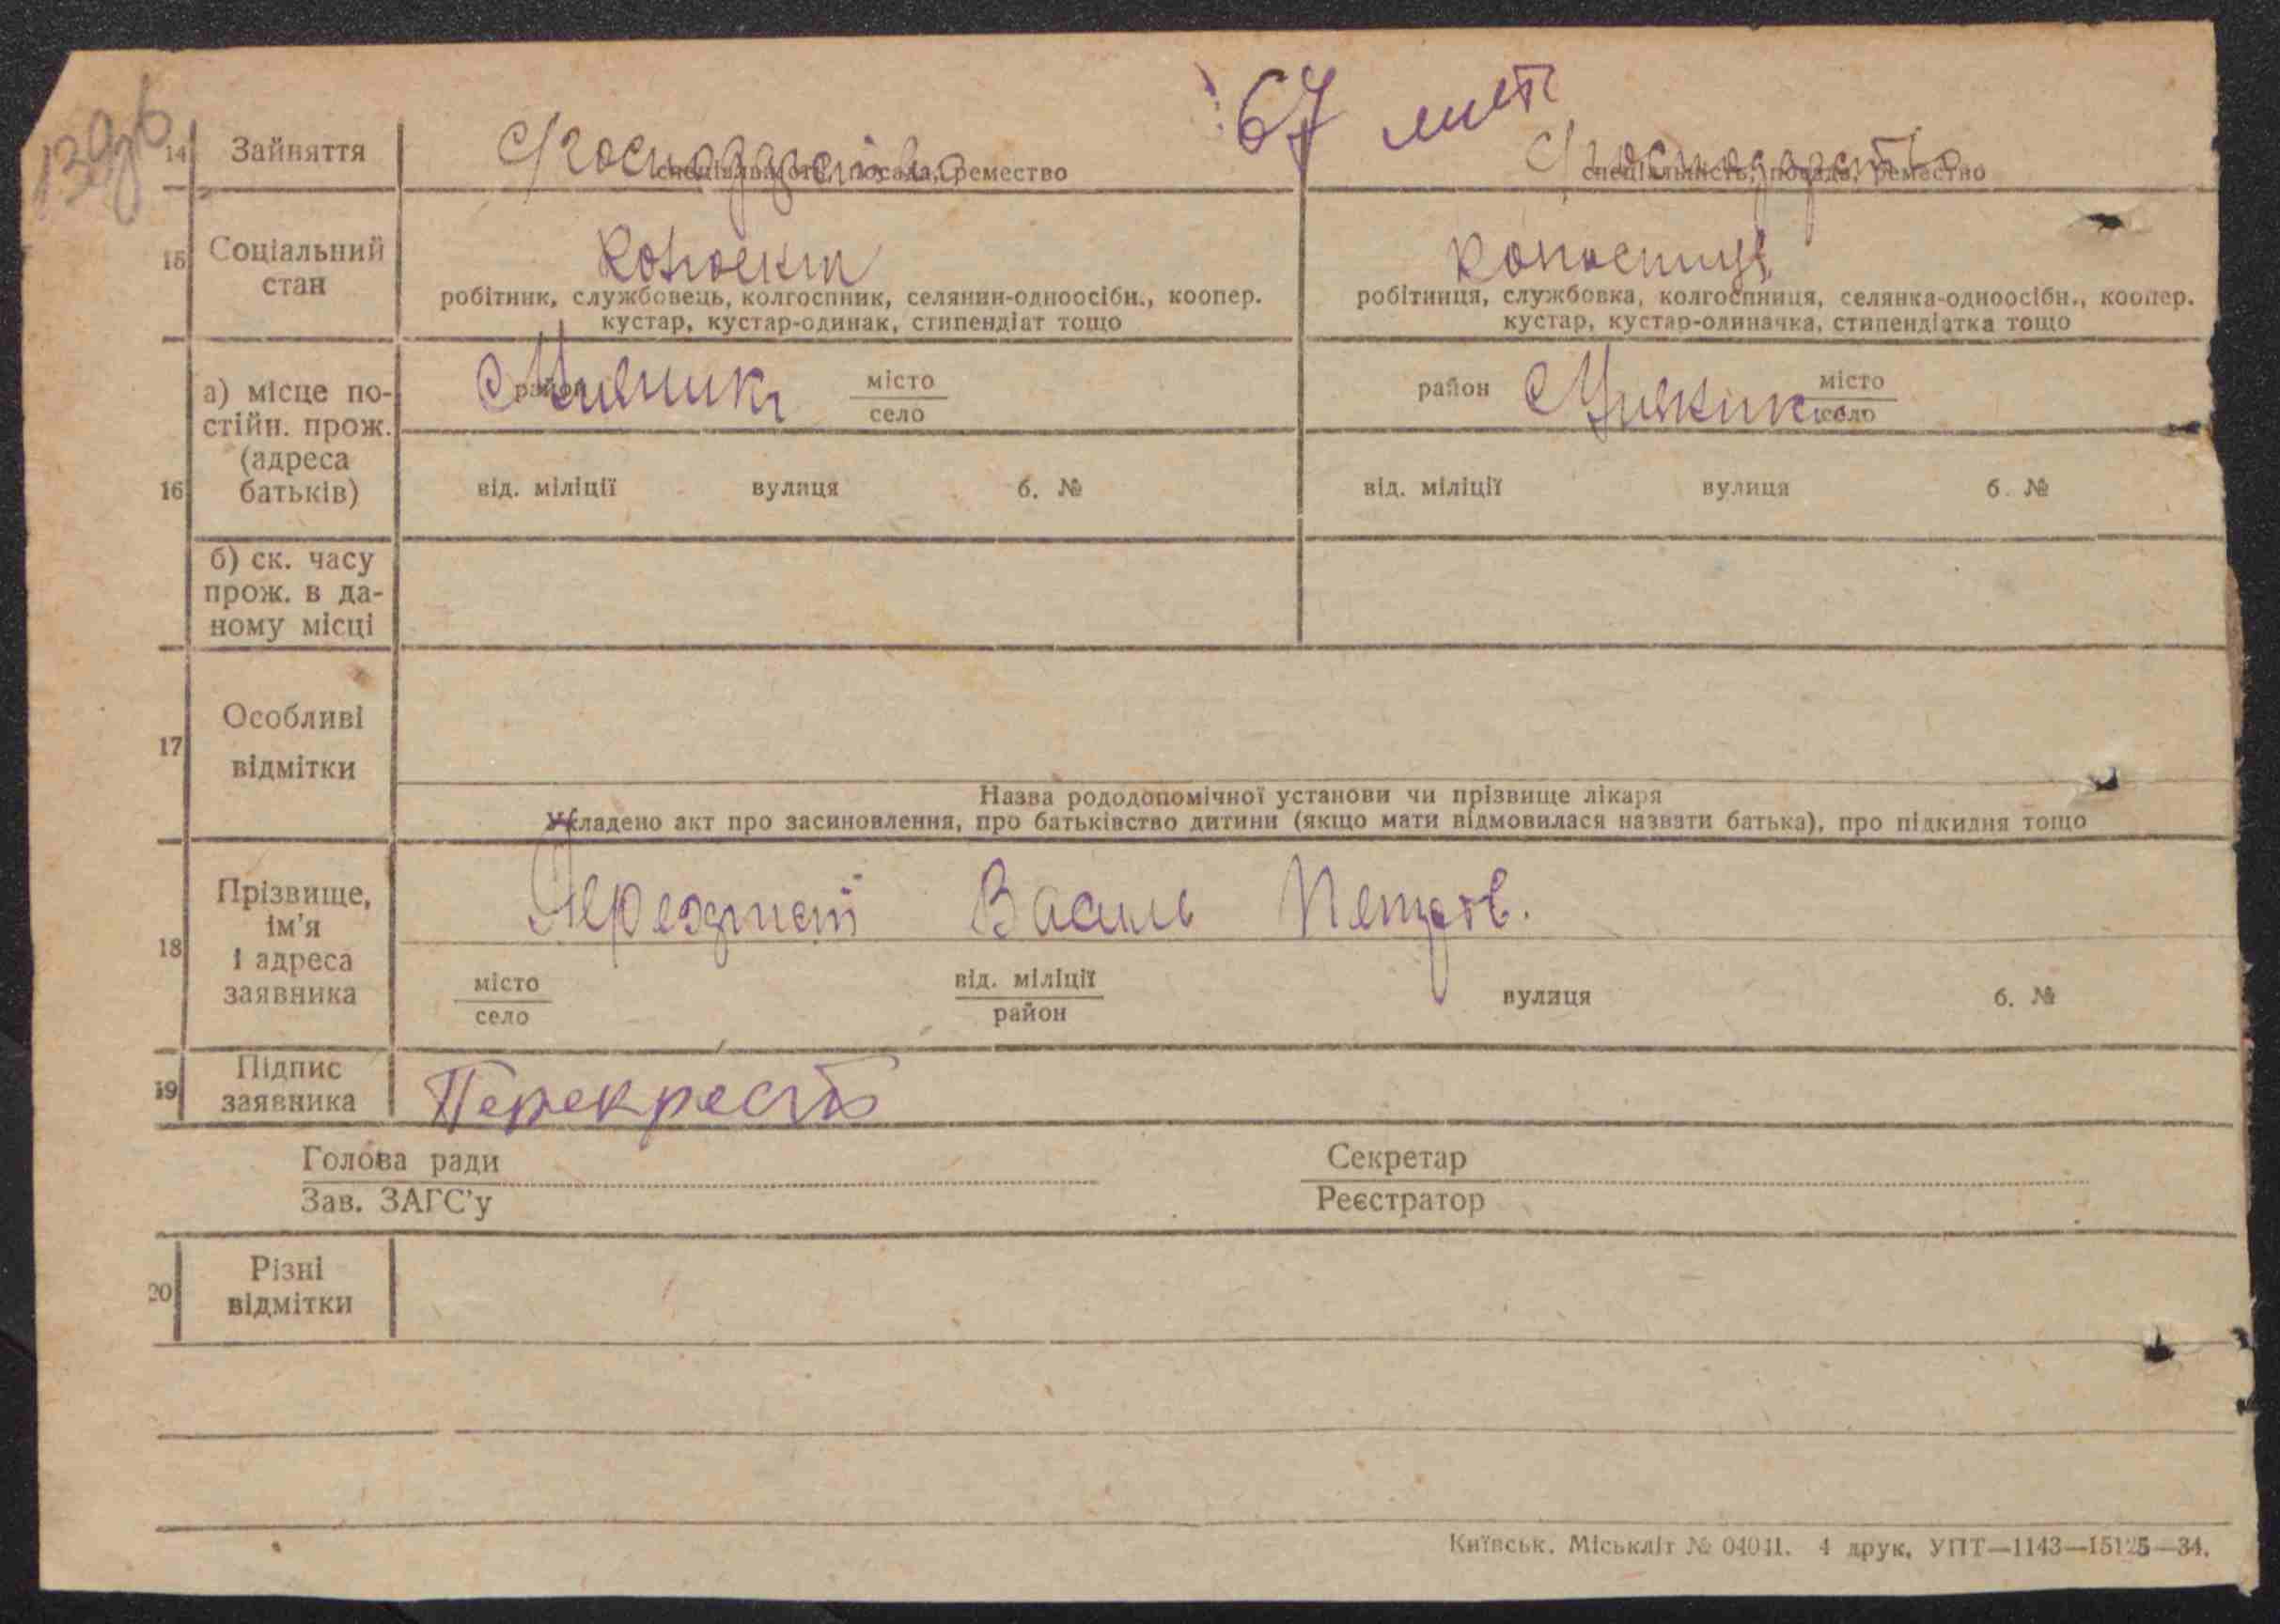 139 зв
67 лист
14 Зайняття С/господарство С/господарство
спеціяльність, посада, ремество спеціяльність, посада, ремество
15 Соціальний стан
робітник, службовець, колгоспник, селянин-одноосібн., коопер. робітниця, службовка, колгоспниця, селянка-одноосібн., коопер.
кустар, кустар-одинак, стипендіат тощо кустар, кустар-одиначка, стипендіатка тощо
16 а) місце по-
стійн. прож.
(адреса
батьків)
район місто район місто
село село
від. міліції вулиця б. № від. міліції вулиця б. №
б) ск. часу
прож. в да-
ному місці
17 Особливі
відмітки
Назва рододопомічної установи чи прізвище лікаря
Укладено акт про засиновлення, про батьківство дитини (якщо мати відмовилася назвати батька), про підкидня тощо
18 Прізвище,
ім'я
і адреса
заявника
Василь
місто від. міліції вулиця б. №
село район
19 Підпис
заявника
Перекрест
Голова ради Секретар
Зав. ЗАГС'у Реєстратор
20 Різні
відмітки
Київськ. Міськліт № 04041. 4 друк. УПТ—1143—15125—34.